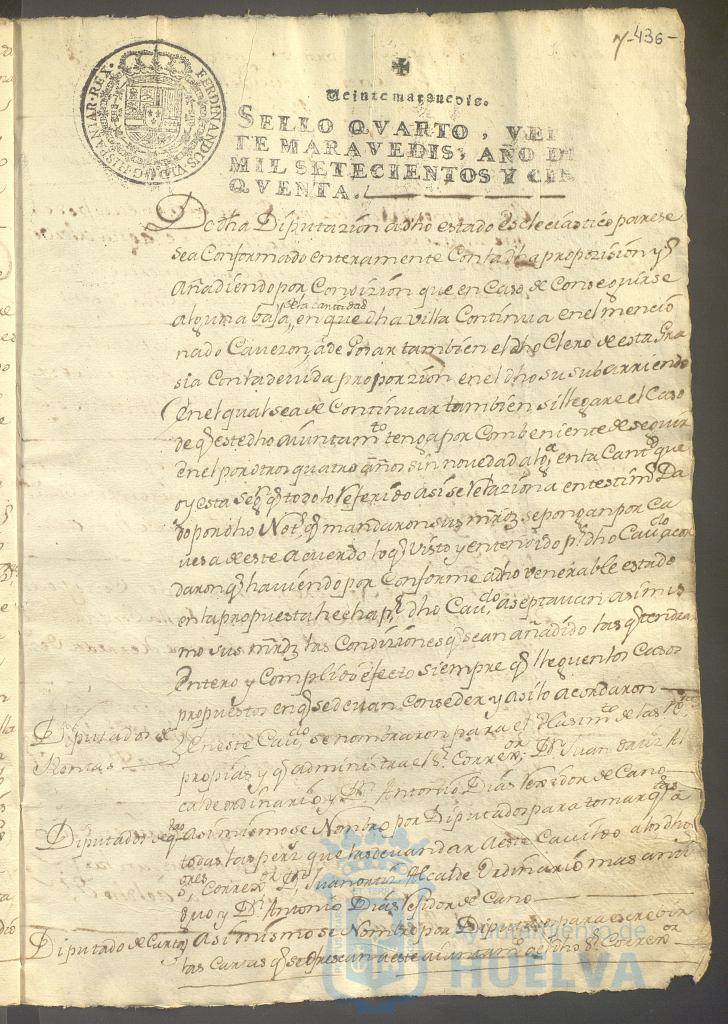 7-436-
FERDINANDUS VI D.G. HISPANIAR. REX.
Veinte maravedis.
SELLO QVARTO, VEI
TE MARAVEDIS, AÑO DE
MIL SETECIENTOS Y CIN
QVENTA.
Dotha Diputazión adho estado esclesiastico parese
sea Conformado enteramente Contadha proposisión y
Añadiendo por Condizión que en Caso de Conseguirse
alguna baja y de la cantidad en que dha villa Continua en el mencio
nado Cavezon, ade Gosar tambien el dho Clero de esta Gra
sia Conta devida proporzion en el dho su subarriendo
En el qual sea de Continuar tambien si llegare el Caso
de q este dho aiuntamto tenga por Combeniente de seguir
en el por otros quatro años sin novedad alga en la Cantd que
oy esta segn q todo lo referido asi se relaziona en testimo Da
do por dho Noto q mandaron sus mrdz se pongan por Ca
vesa de este Acuerdo lo q visto y entendido pr dho Cavdo acor
daron q haviendo por Conforme adho venerable estado
en la propuesta hecha pr dho Cavdo aseptavan asimis
mo sus mrdz las Condiziones q sean añadido las q tendran
Entero y Complido efecto siempre q lleguen los Casos
propuestos en q se devan Conseder y asi lo acordaron
Diputados de Rentas
Y en este Cavdo se nombraron para el Hasimto de las
propias y q administra el Sr Correxor, Dn Juan ortiz Al
calde ordinario y Dn Antonio Dias Rexidor de Cano
Diputados de
Asimismo se Nombro por Diputados para tomar
todas las pers que las de vandar a este Cavildo alos dho
ores Correxor Dn Juan ortiz Alcalde Ordinario mas anti
guo y Dn Antonio Dias Residor de Cano
Diputado de Cartas
Asimismo se Nombro por Diputado para escrevir
las Cartas q se ofrescan a este aiuntamto a el dho Sr Correxor
Ayuntamiento de
HUELVA